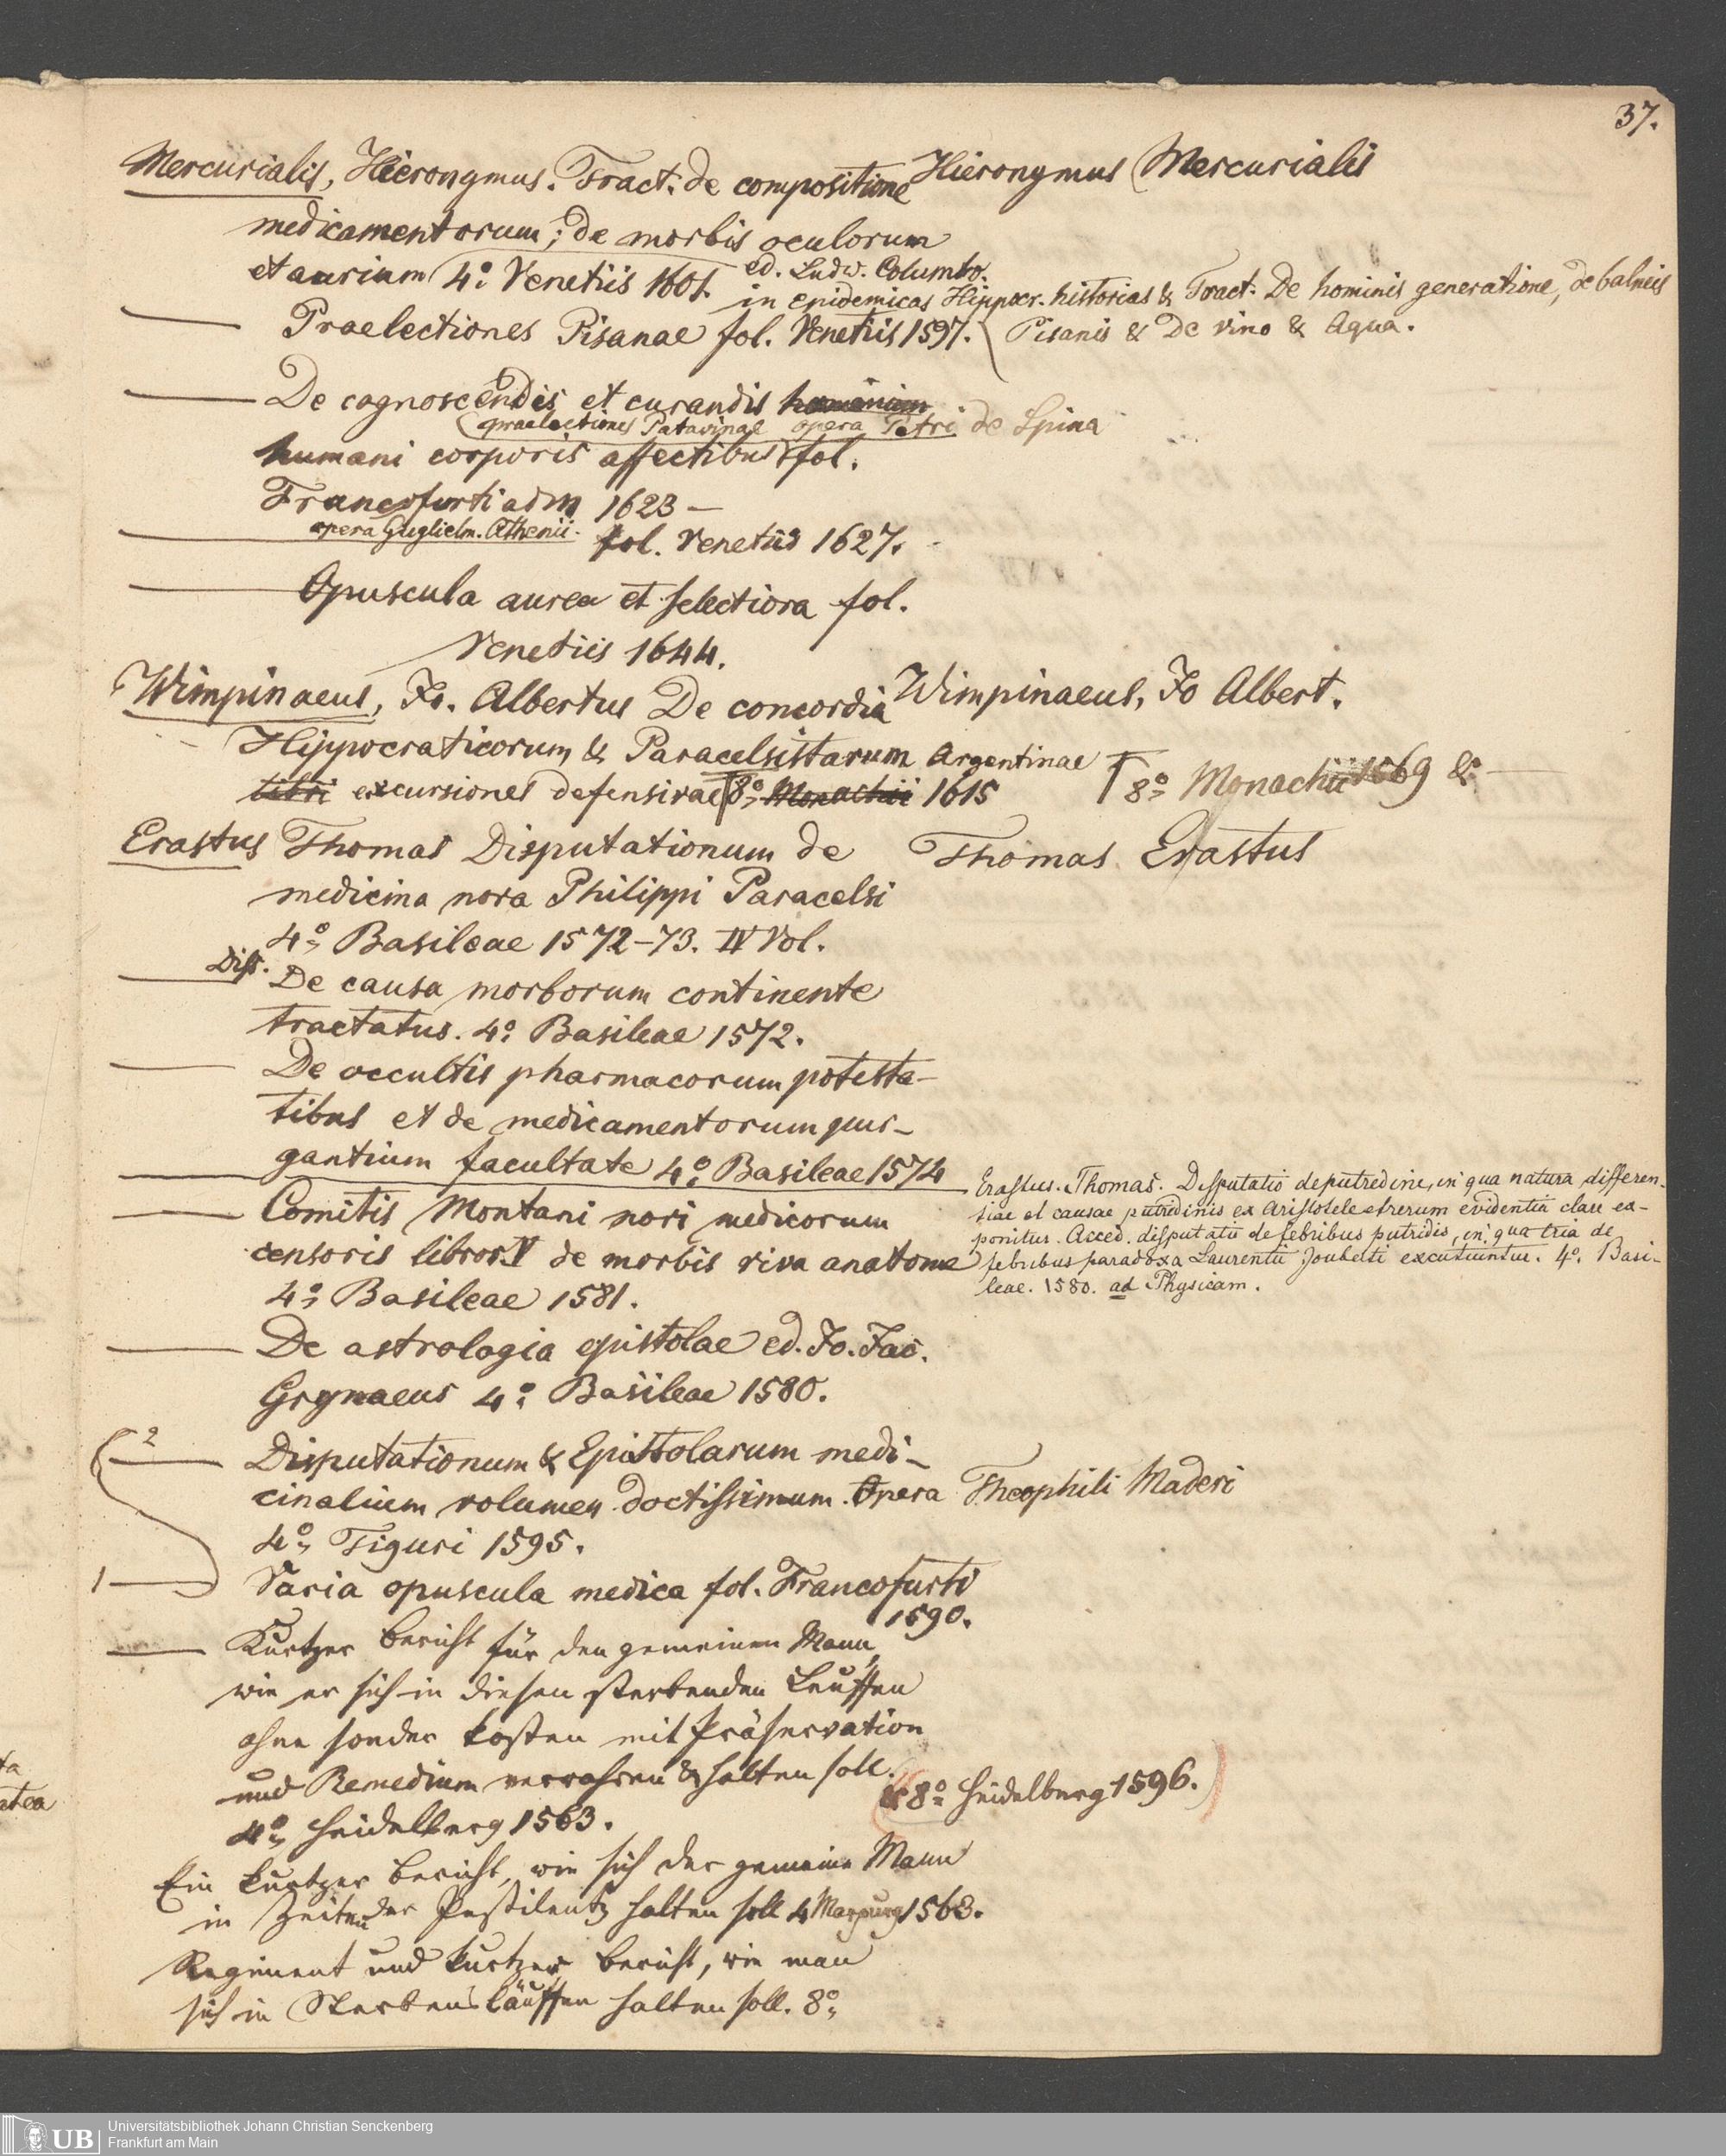 37.
Mercurialis, Hieronymus. Tract: de compositione
Hieronymus Mercurialis
medicamentorum; de morbis oculorum
et aurium 4º Venetiis 1601. ed. Ludw. Columbo.
——— Praelectiones Pisanae fol. Venetiis 1597.
in epidemicas Hippocr. historias & Tract. De hominis generatione, de balneis
Pisanis & De vino & Aqua.
——— De cognoscendis et curandis hominium
praelectiones Patavinae opera Petri de Spina
humani corporis affectibus fol.
Francofurti ad M 1623 –
——— opera Guglielm. Athenii. fol. Venetiis 1627.
——— Opuscula aurea et selectiora fol.
Venetiis 1644.
Wimpinaeus, Jo. Albertus De concordia
Wimpinaeus, Jo Albert.
Hippocraticorum & Paracelsistarum Argentinae
libri excursiones defensivae 8º Monachii 1615
8º Monachii 1569 & ———
Erastus Thomas Disputationum de
Thomas Erastus
medicina nova Philippi Paracelsi
4º Basileae 1572–73. IV Vol.
——— Diss. De causa morborum continente
tractatus. 4º Basileae 1572.
——— De occultis pharmacorum potesta-
tibus et de medicamentorum pur-
gantium facultate 4º Basileae 1574
——— Erastus. Thomas. Disputatio de putredine, in qua natura, differen-
tiae et causae putredinis ex Aristotele et rerum evidentia clare ex-
ponitur. Acced. disputatio de febribus putridis, in qua tria de
febribus paradoxa Laurentii Jouberti excutiuntur. 4º. Basi-
leae. 1580. ad Physicam.
——— Comitis Montani novi medicorum
censoris libror. V de morbis viva anatome
4º Basileae 1581.
——— De astrologia epistolae ed. Jo. Jac.
Grynaeus 4º Basileae 1580.
2 ——— Disputationum & Epistolarum medi-
cinalium volumen doctissimum. Opera Theophili Maderi
4º Tiguri 1595.
1 ——— Varia opuscula medica fol. Francofurti
1590.
——— Kurtzer bericht für den gemeinen Mann,
wie er sich in diesen sterbenden Leuffen
ohne sonder kosten mit Präservation
und Remedium verwahren & halten soll.
4º Heidelberg 1563.
& 8º Heidelberg 1596.
Ein kurtzer bericht, wie sich der gemeine Mann
in Zeiten der Pestilentz halten soll 4 Marpurg 1563.
Regiment und kurtzer bericht, wie man
sich in Sterbensläuffen halten soll. 8º
UB
Universitätsbibliothek Johann Christian Senckenberg
Frankfurt am Main